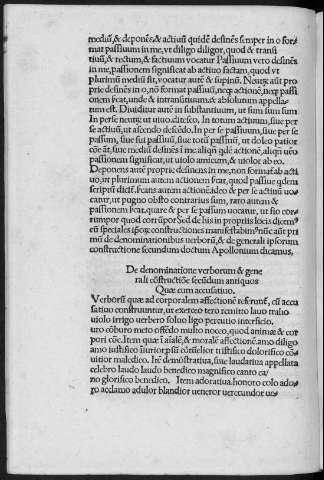 mediũ, & deponẽs, & actiuũ quidẽ desinẽs semper in o for⸗
mat passiuum in me, vt diligo diligor, quod & transi
tiuũ, & rectum, & factiuum vocatur Passiuum vero desinẽs
in me, passionem significat ab actiuo factam, quod vt
plurimũ mediũ sit, vocatur autẽ & supinũ. Neutrũ autẽ pro
prie desinẽs in o, nõ format passiuũ, neqz actionẽ, neqz passi
onem
tum est. Diuiditur autẽ in substantiuum, ut sum sum sum
In per se neutrũ, ut uiuo, uiuo. In totum actiuum, siue per
se actiuũ, ut ascendo descẽdo. In per se passiuum, siue per se
passum, siue sui passiuũ, siue totũ passiuũ, ut doleo patior
siue mediũ desinẽs i me aliqñ qdẽ actionẽ, aliqñ uẽo
passionem significat, ut uiolo amicum, & uiolor ab eo.
Deponens autẽ proprie desinens in me, non format ab acti
uo, ut plurimum autem actionem
scriptũ dicit. autem actionẽ, ideo & per se actiuũ uoc
atur, ut pugno obsto contrarius sum, raro autem &
passionem quare & per se passum uocatur, ut fio cor⸗
rumpor quod corrũpor Sed de his in propriis locis dicem⁹
cũ speciales constructiones nũc aũt pri
mũ de denominationibus verborũ, & de generali ipsorum
constructione secundum doctum Apollonium dicamus.
De denominatione verborum & gene
rali cõstructiõe secũdum antiquos
Quæ cum accusatiuo.
Verborũ quæ ad corporalem affectionẽ referunt, cũ accu
satiuo construuntur, ut exerceo tero remitto lauo traho
uiolo irrigo uerbero soluo ligo percutio interficio.
uro cõburo meto offẽdo multo noceo, quod animæ & cor
pori cõe. Item quæ ĩ aiãlẽ, & moralẽ affectionẽ. amo diligo
amo iustifico iniurior tristifico dolorifico cõ
uitior maledico. Itẽ dẽmonstratiua, siue laudatiua appellata
celebro laudo laudo benedico magnifico canto ca⸗
no glorifico benedico. Item adoratiua. honoro colo ado⸗
ro acclamo adulor blandior ueneror uerecundor ue⸗